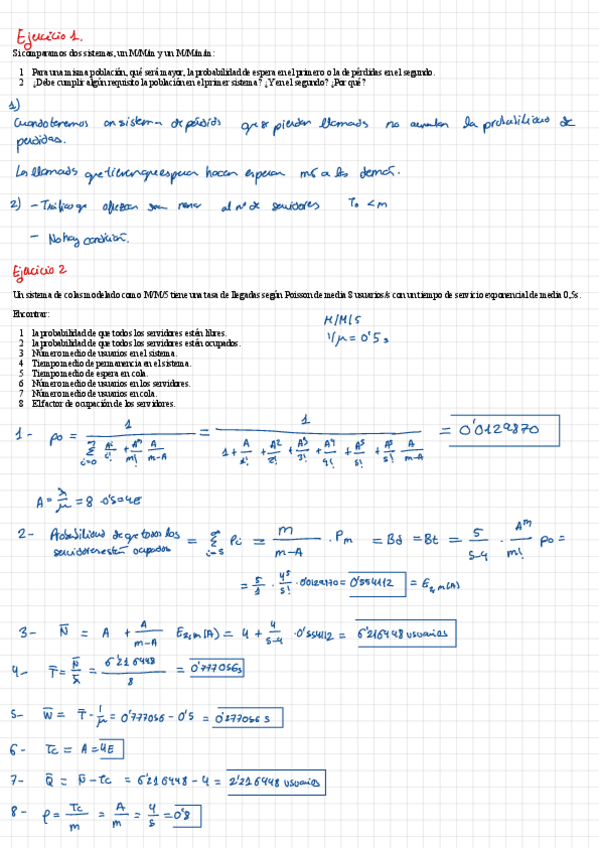 Ejercicio 1.
Si comparamos dos sistemas, un M/M/m y un M/M/m/m:
1 Para una misma población, qué será mayor, la probabilidad de espera en el primero o la de pérdidas en el segundo.
2 ¿Debe cumplir algún requisito la población en el primer sistema? ¿Y en el segundo? ¿Por qué?
1)
Cuando tenemos un sistema de pérdidas que se pierdan llamadas no aumentan la probabilidad de
perdidas.
Las llamadas que tienen que esperar hacen esperar más a las demás.
2) - Tráfico que ofrezcan sea menor al nº de servidores To < m
- No hay condición.
Ejercicio 2
Un sistema de colas modelado como M/M/5 tiene una tasa de llegadas según Poisson de media 8 usuarios/s con un tiempo de servicio exponencial de media 0,5s.
Encontrar:
M/M/5
1/μ = 0'5 s
1 la probabilidad de que todos los servidores estén libres.
2 la probabilidad de que todos los servidores estén ocupados.
3 Número medio de usuarios en el sistema.
4 Tiempo medio de permanencia en el sistema.
5 Tiempo medio de espera en cola.
6 Número medio de usuarios en los servidores.
7 Número medio de usuarios en cola.
8 El factor de ocupación de los servidores.
1- po = 1 / (Σ i=0 A^i/i! + A^m/m! A/m-A) = 1 / (1 + A/1! + A²/2! + A³/3! + A⁴/4! + A⁵/5! + A⁵/5! A/m-A) = 0'0129870
A = λ/μ = 8 · 0'5 = 4E
2- Probabilidad de que todos los servidores estén ocupados = Σ i=5 Pi = m/m-A · Pm = Bd = Bt = 5/5-4 · A^m/m! po =
= 5/1 · 4⁵/5! · 0'0129870 = 0'554112 = E2,m(A)
3- N̄ = A + A/m-A E2,m(A) = 4 + 4/5-4 · 0'554112 = 6'216448 usuarios
4- T̄ = N̄/λ = 6'216448/8 = 0'777056s
5- W̄ = T̄ - 1/μ = 0'777056 - 0'5 = 0'277056 s
6- Tc = A = 4E
7- Q̄ = N̄ - Tc = 6'216448 - 4 = 2'216448 usuarios
8- ρ = Tc/m = A/m = 4/5 = 0'8